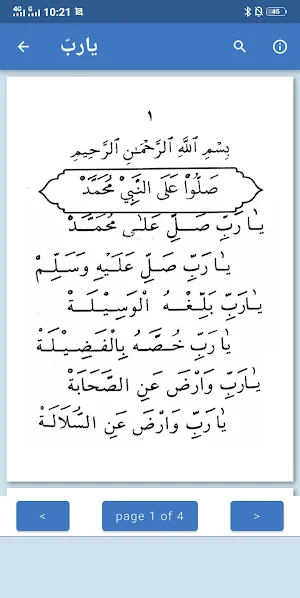 4G G 10:21 45
ياربّ
١
بِسْمِ اللَّهِ الرَّحْمٰنِ الرَّحِيمِ
صَلُّوْا عَلَى النَّبِيْ مُحَمَّدْ
يَارَبِّ صَلِّ عَلٰى مُحَمَّدْ
يَارَبِّ صَلِّ عَلَيْهِ وَسَلِّمْ
يَارَبِّ بَلِّغْهُ الْوَسِيْلَةْ
يَارَبِّ خُصَّهُ بِالْفَضِيْلَةْ
يَارَبِّ وَارْضَ عَنِ الصَّحَابَةْ
يَارَبِّ وَارْضَ عَنِ السُّلَالَةْ
< page 1 of 4 >